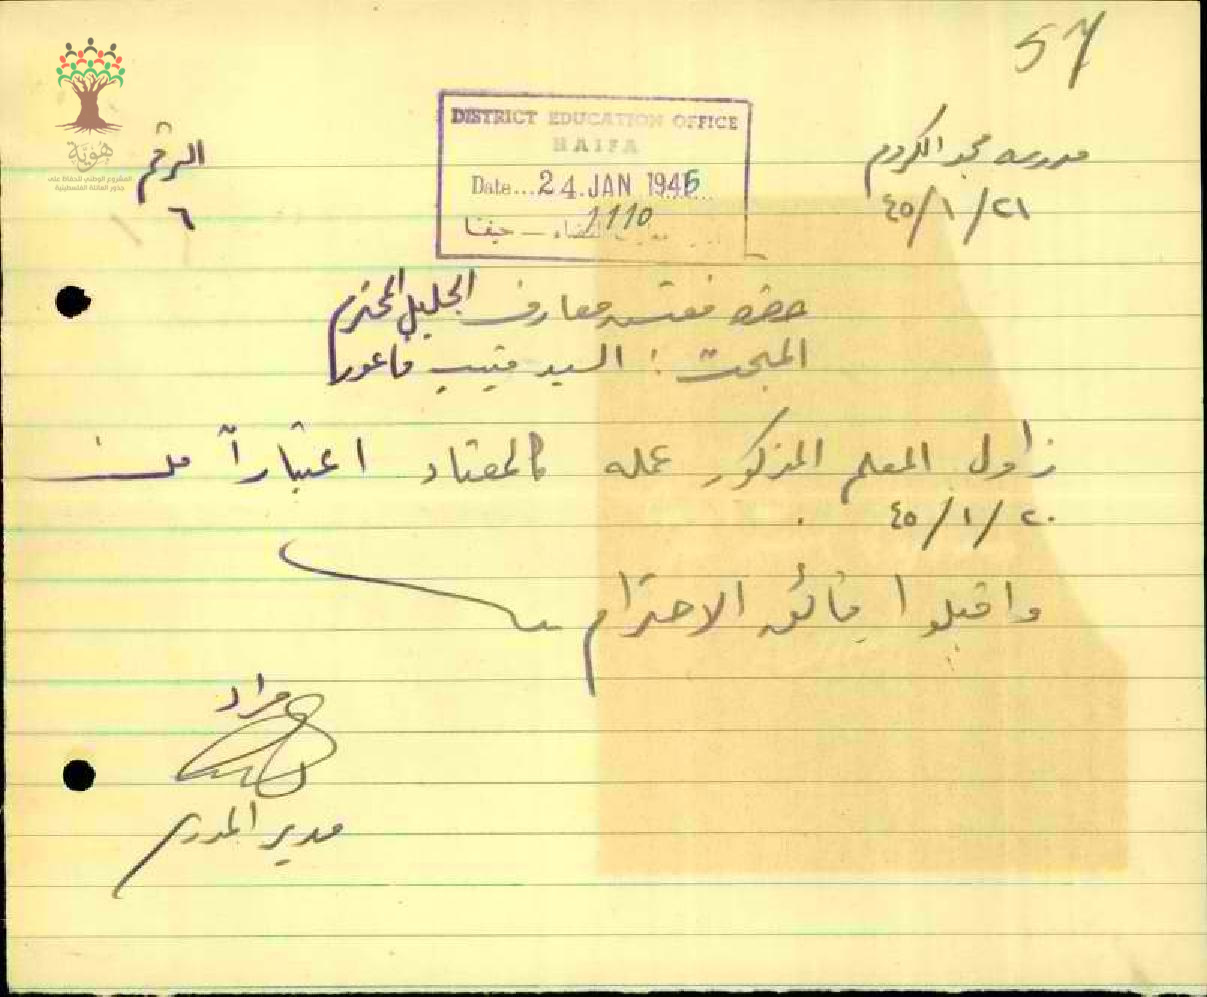 57
هوية
المشروع الوطني للحفاظ على
جذور العائلة الفلسطينية
DISTRICT EDUCATION OFFICE
HAIFA
Date... 24 JAN 1945
1110
حيفا
مدرسة مجد الكروم
٤٥/١/٢١
الرقم
٦
حضرة مفتش معارف الجليل المحترم
المبحث : السيد فاعور
زاول المعلم المذكور عمله كالمعتاد اعتباراً من
٤٥/١/٢٠
واقبلوا فائق الاحترام
مراد
مدير المدرسة